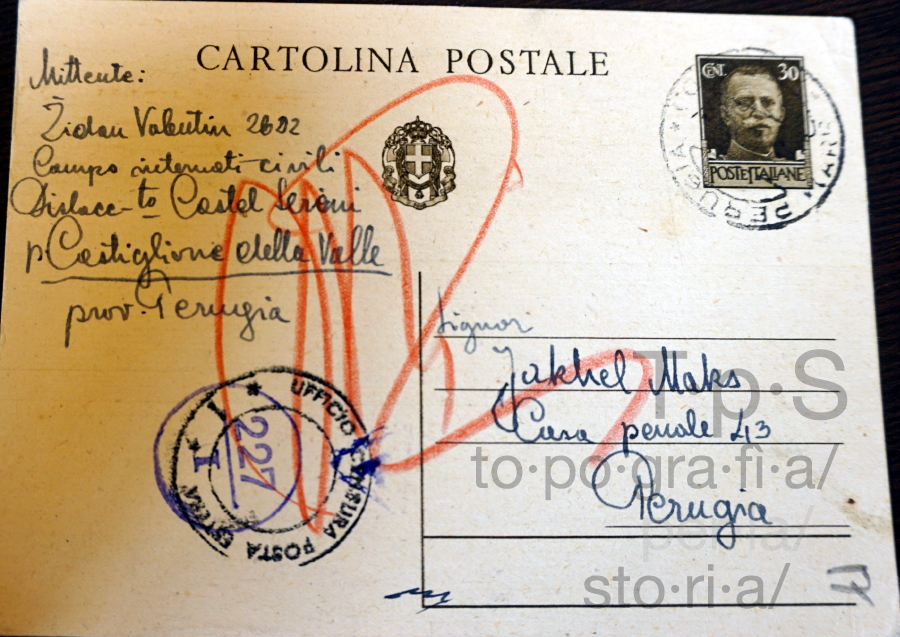 CARTOLINA POSTALE
Mittente:
Židan Valentin 2602
Campo internati civili
Distacc-to Castel Sereni
p Castiglione della Valle
prov. Perugia
CENT. 30
POSTE ITALIANE
PERUGIA
Signor
Jakhel Maks
Casa penale 43
Perugia
UFFICIO CENSURA POSTA ESTERA
I
227
I
T·p·S
to·po·gra·fi·a/
pe·na/
sto·ri·a/